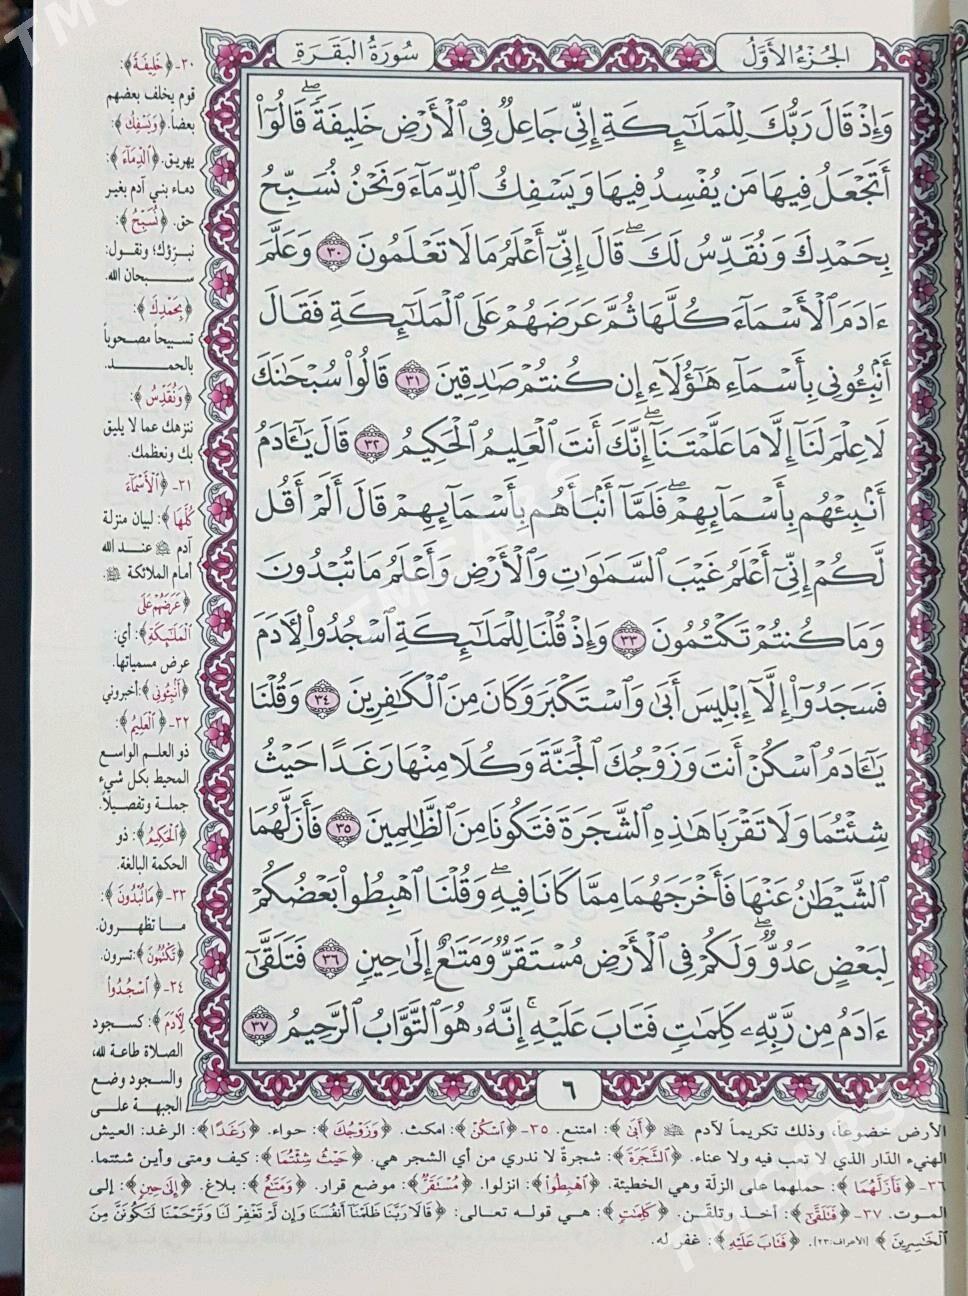 الجُزْءُ الأَوَّلُ
سُورَةُ البَقَرَةِ
وَإِذْ قَالَ رَبُّكَ لِلْمَلَٰٓئِكَةِ إِنِّي جَاعِلٌ فِي ٱلْأَرْضِ خَلِيفَةً ۖ قَالُوٓا۟
أَتَجْعَلُ فِيهَا مَن يُفْسِدُ فِيهَا وَيَسْفِكُ ٱلدِّمَآءَ وَنَحْنُ نُسَبِّحُ
بِحَمْدِكَ وَنُقَدِّسُ لَكَ ۖ قَالَ إِنِّيٓ أَعْلَمُ مَا لَا تَعْلَمُونَ ٣٠ وَعَلَّمَ
ءَادَمَ ٱلْأَسْمَآءَ كُلَّهَا ثُمَّ عَرَضَهُمْ عَلَى ٱلْمَلَٰٓئِكَةِ فَقَالَ
أَنۢبِـُٔونِي بِأَسْمَآءِ هَٰٓؤُلَآءِ إِن كُنتُمْ صَٰدِقِينَ ٣١ قَالُوا۟ سُبْحَٰنَكَ
لَا عِلْمَ لَنَآ إِلَّا مَا عَلَّمْتَنَآ ۖ إِنَّكَ أَنتَ ٱلْعَلِيمُ ٱلْحَكِيمُ ٣٢ قَالَ يَٰٓـَٔادَمُ
أَنۢبِئْهُم بِأَسْمَآئِهِمْ ۖ فَلَمَّآ أَنۢبَأَهُم بِأَسْمَآئِهِمْ قَالَ أَلَمْ أَقُل
لَّكُمْ إِنِّيٓ أَعْلَمُ غَيْبَ ٱلسَّمَٰوَٰتِ وَٱلْأَرْضِ وَأَعْلَمُ مَا تُبْدُونَ
وَمَا كُنتُمْ تَكْتُمُونَ ٣٣ وَإِذْ قُلْنَا لِلْمَلَٰٓئِكَةِ ٱسْجُدُوا۟ لِـَٔادَمَ
فَسَجَدُوٓا۟ إِلَّآ إِبْلِيسَ أَبَىٰ وَٱسْتَكْبَرَ وَكَانَ مِنَ ٱلْكَٰفِرِينَ ٣٤ وَقُلْنَا
يَٰٓـَٔادَمُ ٱسْكُنْ أَنتَ وَزَوْجُكَ ٱلْجَنَّةَ وَكُلَا مِنْهَا رَغَدًا حَيْثُ
شِئْتُمَا وَلَا تَقْرَبَا هَٰذِهِ ٱلشَّجَرَةَ فَتَكُونَا مِنَ ٱلظَّٰلِمِينَ ٣٥ فَأَزَلَّهُمَا
ٱلشَّيْطَٰنُ عَنْهَا فَأَخْرَجَهُمَا مِمَّا كَانَا فِيهِ ۖ وَقُلْنَا ٱهْبِطُوا۟ بَعْضُكُمْ
لِبَعْضٍ عَدُوٌّ ۖ وَلَكُمْ فِي ٱلْأَرْضِ مُسْتَقَرٌّ وَمَتَٰعٌ إِلَىٰ حِينٍ ٣٦ فَتَلَقَّىٰٓ
ءَادَمُ مِن رَّبِّهِۦ كَلِمَٰتٍ فَتَابَ عَلَيْهِ ۚ إِنَّهُۥ هُوَ ٱلتَّوَّابُ ٱلرَّحِيمُ ٣٧
٦
٣٠- ﴿خَلِيفَةً﴾:
قوم يخلف بعضهم
بعضاً. ﴿وَيَسْفِكُ﴾:
يهريق. ﴿ٱلدِّمَآءَ﴾:
دماء بني آدم بغير
حق. ﴿نُسَبِّحُ﴾:
نبرِّؤك؛ ونقول:
سبحان الله.
﴿بِحَمْدِكَ﴾:
تسبيحاً مصحوباً
بالحمد.
﴿وَنُقَدِّسُ﴾:
ننزهك عما لا يليق
بك ونعظمك.
٣١- ﴿ٱلْأَسْمَآءَ
كُلَّهَا﴾: لبيان منزلة
آدم ﷺ عند الله
أمام الملائكة ﷺ.
﴿عَرَضَهُمْ عَلَى
ٱلْمَلَٰٓئِكَةِ﴾: أي:
عرض مسمياتها.
﴿أَنۢبِـُٔونِي﴾: أخبروني
٣٢- ﴿ٱلْعَلِيمُ﴾:
ذو العلم الواسع
المحيط بكل شيء
جملة وتفصيلاً.
﴿ٱلْحَكِيمُ﴾: ذو
الحكمة البالغة.
٣٣- ﴿مَا تُبْدُونَ﴾:
ما تظهرون.
﴿تَكْتُمُونَ﴾: تسرون.
٣٤- ﴿ٱسْجُدُوا۟
لِـَٔادَمَ﴾: كسجود
الصلاة طاعة لله،
والسجود وضع
الجبهة على
الأرض خضوعاً، وذلك تكريماً لآدم ﷺ ﴿أَبَىٰ﴾: امتنع. ٣٥- ﴿ٱسْكُنْ﴾: امكث. ﴿وَزَوْجُكَ﴾: حواء. ﴿رَغَدًا﴾: الرغد: العيش
الهنيء الدَّار الذي لا تعب فيه ولا عناء. ﴿ٱلشَّجَرَةَ﴾: شجرةً لا ندري من أي الشجر هي. ﴿حَيْثُ شِئْتُمَا﴾: كيف ومتى وأين شئتما.
٣٦- ﴿فَأَزَلَّهُمَا﴾: حملهما على الزلَّة وهي الخطيئة. ﴿ٱهْبِطُوا۟﴾: انزلوا. ﴿مُسْتَقَرٌّ﴾: موضع قرار. ﴿وَمَتَٰعٌ﴾: بلاغ. ﴿إِلَىٰ حِينٍ﴾: إلى
الموت. ٣٧- ﴿فَتَلَقَّىٰٓ﴾: أخذ وتلقن. ﴿كَلِمَٰتٍ﴾: هي قوله تعالى: ﴿قَالَا رَبَّنَا ظَلَمْنَآ أَنفُسَنَا وَإِن لَّمْ تَغْفِرْ لَنَا وَتَرْحَمْنَا لَنَكُونَنَّ مِنَ
ٱلْخَٰسِرِينَ﴾ [الأعراف: ٢٣]. ﴿فَتَابَ عَلَيْهِ﴾: غفر له.
TMCARS
TMCARS